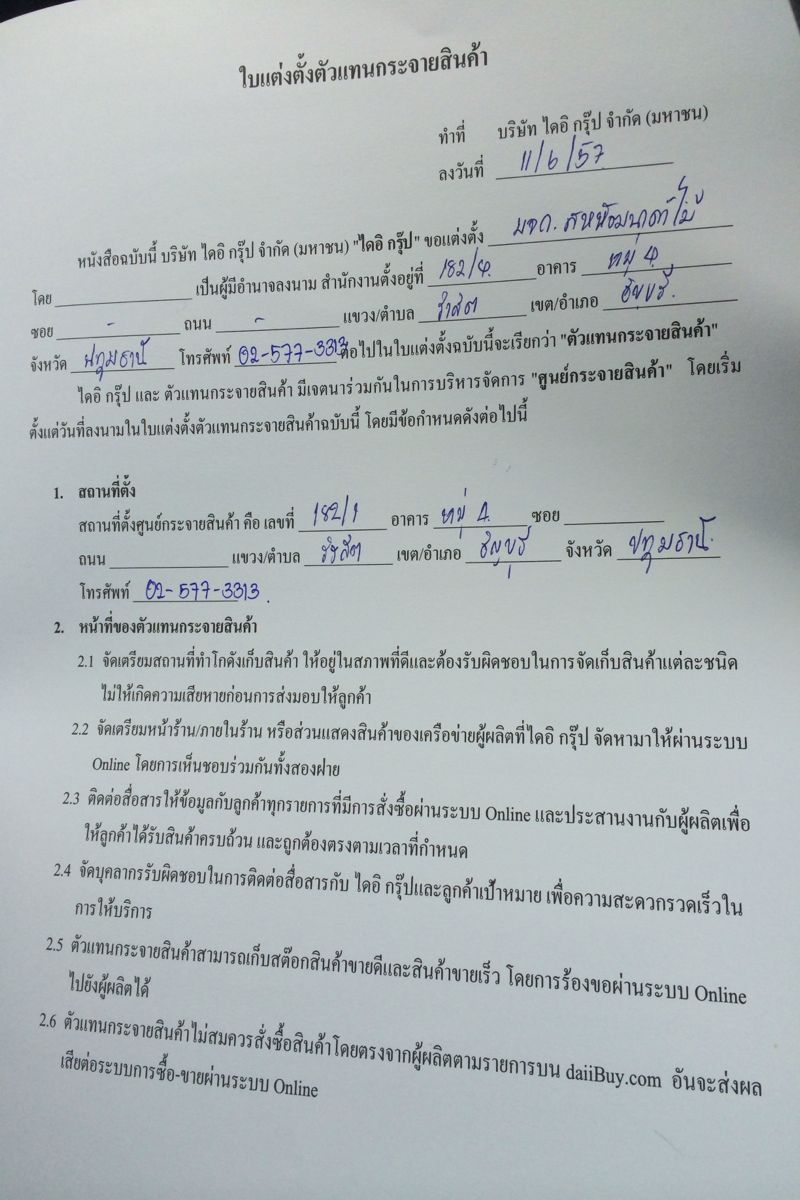 ใบแต่งตั้งตัวแทนกระจายสินค้า
ทำที่ บริษัท ไดอิ กรุ๊ป จำกัด (มหาชน)
ลงวันที่ 11/6/57
หนังสือฉบับนี้ บริษัท ไดอิ กรุ๊ป จำกัด (มหาชน) "ไดอิ กรุ๊ป" ขอแต่งตั้ง
โดย เป็นผู้มีอำนาจลงนาม สำนักงานตั้งอยู่ที่ 182/ อาคาร หมู่ 4
ซอย - ถนน - แขวง/ตำบล เขต/อำเภอ ธัญบุรี.
จังหวัด ปทุมธานี โทรศัพท์ 02-577-3313 ต่อไปในใบแต่งตั้งฉบับนี้จะเรียกว่า "ตัวแทนกระจายสินค้า"
ไดอิ กรุ๊ป และ ตัวแทนกระจายสินค้า มีเจตนาร่วมกันในการบริหารจัดการ "ศูนย์กระจายสินค้า" โดยเริ่ม
ตั้งแต่วันที่ลงนามในใบแต่งตั้งตัวแทนกระจายสินค้าฉบับนี้ โดยมีข้อกำหนดดังต่อไปนี้
1. สถานที่ตั้ง
สถานที่ตั้งศูนย์กระจายสินค้า คือ เลขที่ 182/1 อาคาร หมู่ 4 ซอย
ถนน แขวง/ตำบล รังสิต เขต/อำเภอ ธัญบุรี จังหวัด ปทุมธานี.
โทรศัพท์ 02-577-3313.
2. หน้าที่ของตัวแทนกระจายสินค้า
2.1 จัดเตรียมสถานที่ทำโกดังเก็บสินค้า ให้อยู่ในสภาพที่ดีและต้องรับผิดชอบในการจัดเก็บสินค้าแต่ละชนิด
ไม่ให้เกิดความเสียหายก่อนการส่งมอบให้ลูกค้า
2.2 จัดเตรียมหน้าร้าน/ภายในร้าน หรือส่วนแสดงสินค้าของเครือข่ายผู้ผลิตที่ไดอิ กรุ๊ป จัดหามาให้ผ่านระบบ
Online โดยการเห็นชอบร่วมกันทั้งสองฝ่าย
2.3 ติดต่อสื่อสารให้ข้อมูลกับลูกค้าทุกรายการที่มีการสั่งซื้อผ่านระบบ Online และประสานงานกับผู้ผลิตเพื่อ
ให้ลูกค้าได้รับสินค้าครบถ้วน และถูกต้องตรงตามเวลาที่กำหนด
2.4 จัดบุคลากรรับผิดชอบในการติดต่อสื่อสารกับ ไดอิ กรุ๊ปและลูกค้าเป้าหมาย เพื่อความสะดวกรวดเร็วใน
การให้บริการ
2.5 ตัวแทนกระจายสินค้าสามารถเก็บสต๊อกสินค้าขายดีและสินค้าขายเร็ว โดยการร้องขอผ่านระบบ Online
ไปยังผู้ผลิตได้
2.6 ตัวแทนกระจายสินค้าไม่สมควรสั่งซื้อสินค้าโดยตรงจากผู้ผลิตตามรายการบน daiiBuy.com อันจะส่งผล
เสียต่อระบบการซื้อ-ขายผ่านระบบ Online